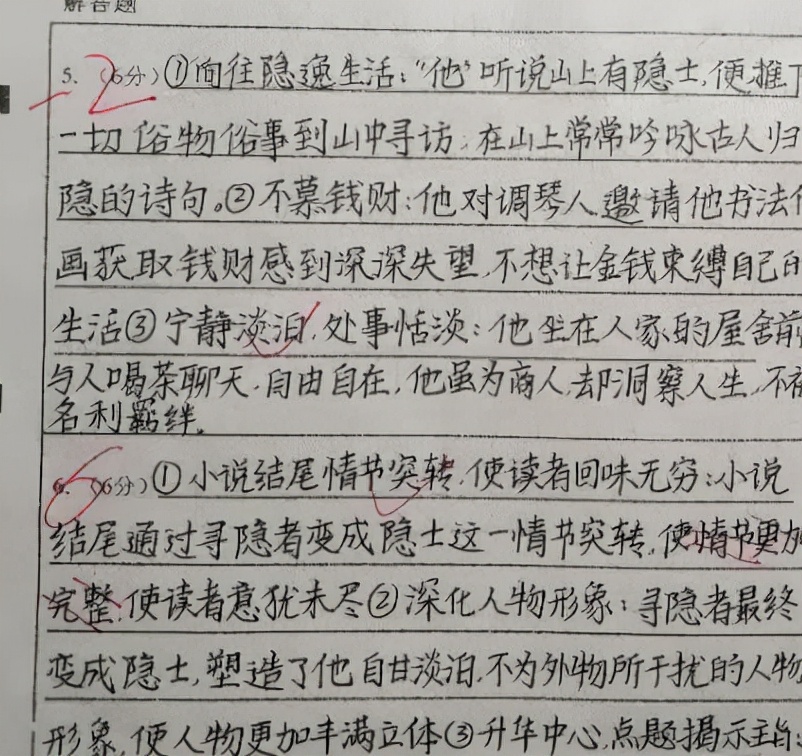 解答题
5. (6分)①向往隐逸生活：“他”听说山上有隐士，便推
一切俗物俗事到山中寻访，在山上常常吟咏古人归
隐的诗句。②不慕钱财：他对调琴人邀请他书法
画获取钱财感到深深失望，不想让金钱束缚自己的
生活③宁静淡泊，处事恬淡：他坐在人家的屋舍前
与人喝茶聊天，自由自在，他虽为商人，却洞察人生，不
名利羁绊。
6. (6分)①小说结尾情节突转，使读者回味无穷：小说
结尾通过寻隐者变成隐士这一情节突转，使情节更加
完整，使读者意犹未尽②深化人物形象：寻隐者最终
变成隐士，塑造了他自甘淡泊，不为外物所干扰的人物
形象，使人物更加丰满立体③升华中心，点题揭示主旨：